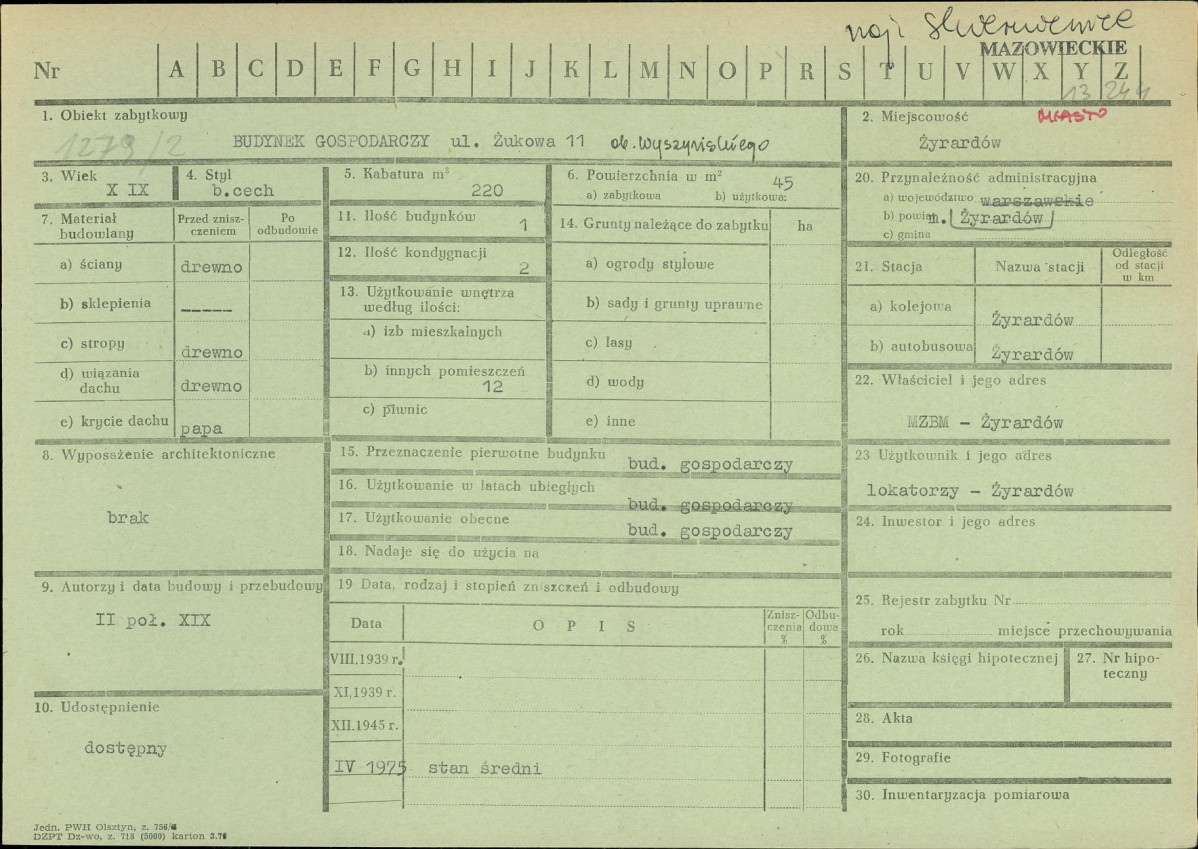 woj. Skierniewice
MAZOWIECKIE
Nr A B C D E F G H I J K L M N O P R S T U V W X Y Z
13 244
1. Obiekt zabytkowy
1279/2 BUDYNEK GOSPODARCZY ul. Żukowa 11 ob. Wyszyńskiego
2. Miejscowość MIASTO
Żyrardów
3. Wiek
X IX
4. Styl
b.cech
5. Kabatura m³
220
6. Powierzchnia w m²
45
a) zabytkowa b) użytkowa:
20. Przynależność administracyjna
a) województwo warszawskie
b) powiat m. Żyrardów
c) gmina
7. Materiał budowlany
Przed znisz-
czeniem
Po
odbudowie
a) ściany drewno
b) sklepienia -----
c) stropy drewno
d) wiązania
dachu drewno
e) krycie dachu papa
11. Ilość budynków
1
12. Ilość kondygnacji
2
13. Użytkowanie wnętrza
według ilości:
a) izb mieszkalnych
b) innych pomieszczeń
12
c) piwnic
14. Grunty należące do zabytku ha
a) ogrody stylowe
b) sady i grunty uprawne
c) lasy
d) wody
e) inne
21. Stacja Nazwa stacji
Odległość
od stacji
w km
a) kolejowa Żyrardów
b) autobusowa Żyrardów
22. Właściciel i jego adres
MZBM - Żyrardów
8. Wyposażenie architektoniczne
brak
15. Przeznaczenie pierwotne budynku bud. gospodarczy
16. Użytkowanie w latach ubiegłych bud. gospodarczy
17. Użytkowanie obecne bud. gospodarczy
18. Nadaje się do użycia na
23 Użytkownik i jego adres
lokatorzy - Żyrardów
24. Inwestor i jego adres
9. Autorzy i data budowy i przebudowy
II poł. XIX
19 Data, rodzaj i stopień zniszczeń i odbudowy
Data O P I S
Znisz-
czenia
%
Odbu-
dowa
%
VIII.1939 r.
XI,1939 r.
XII.1945 r.
IV 1975 stan średni
25. Rejestr zabytku Nr
rok miejsce przechowywania
26. Nazwa księgi hipotecznej
27. Nr hipo-
teczny
10. Udostępnienie
dostępny
28. Akta
29. Fotografie
30. Inwentaryzacja pomiarowa
Jedn. PWH Olsztyn, z. 756/
DZPT Dz-wo, z. 718 (5000) karton 3.76